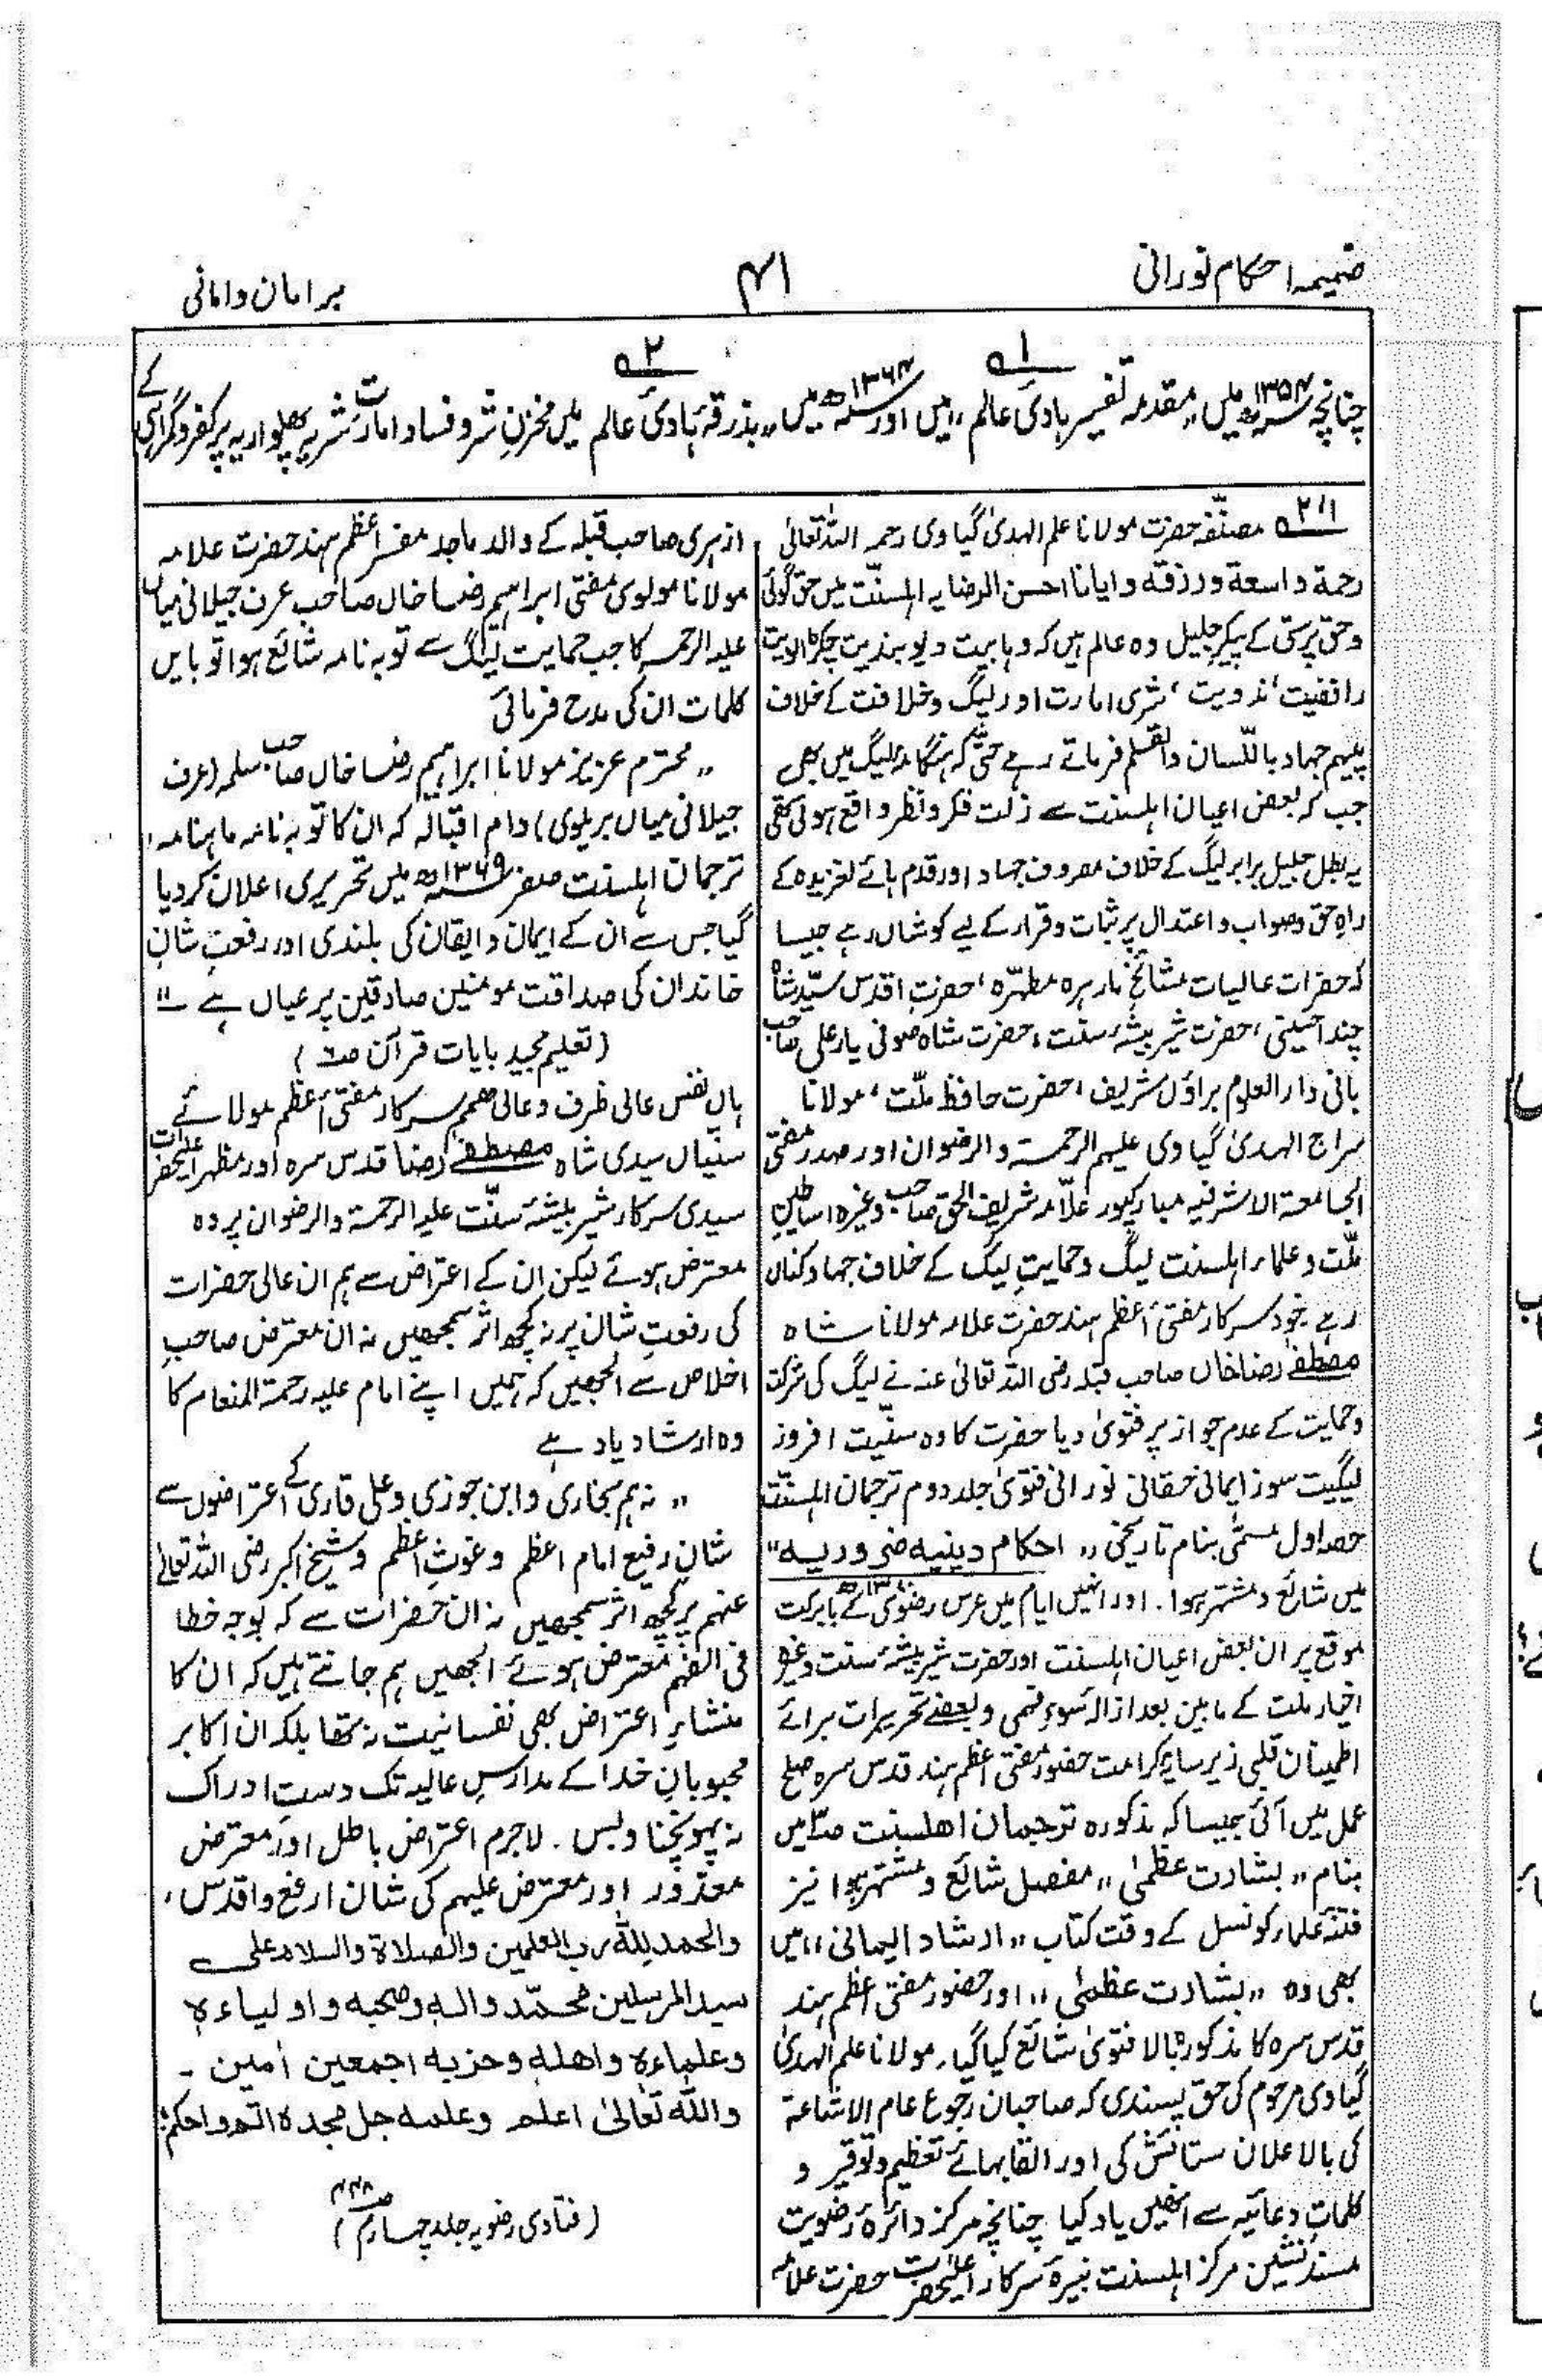 ضمیمہ احکام نورانی
۴۱
بر امان دامانی
۱ ۲
چنانچہ ۱۳۵۴ھ میں ،،مقدمہ تفسیر ہادیٔ عالم،، میں اور ۱۳۶۴ھ میں ،،بذرقۂ ہادیٔ عالم میں مخزنِ شر و فساد امارتِ شریہ پھلواریہ پر کفر و گمراہی کے
۱،۲ مصنفہ حضرت مولانا علم الہدیٰ گیاوی رحمہ اللہ تعالیٰ
رحمۃ واسعۃ ورزقہ وایانا احسن الرضایہ اہلسنّت میں حق گوئی
و حق پرستی کے پیکرِ جلیل وہ عالم ہیں کہ وہابیت دیوبندیت چکڑالویت
رافضیت، ندویت، شری امارت اور لیگ و خلافت کے خلاف
پیہم جہاد باللّسان والقلم فرماتے رہے حتیٰ کہ ہنگامۂ لیگ میں بھی
جب کہ بعض اعیان اہلسنت سے زلت فکر و نظر واقع ہوئی تھی
یہ بطل جلیل برابر لیگ کے خلاف مصروف جہاد اور قدم ہائے لغزیدہ کے
راہِ حق و صواب و اعتدال پر ثبات و قرار کے لیے کوشاں رہے جیسا
کہ حضرات عالیات مشائخِ مارہرہ مطہّرہ، حضرتِ اقدس سیّد شاہ
چندا حسینی، حضرت شیر بیشۂ سنت، حضرت شاہ صوفی یار علی صاحب
بانی دار العلوم براؤں شریف، حضرت حافظ ملّت، مولانا
سراج الہدیٰ گیاوی علیہم الرحمۃ والرضوان اور صدر مفتی
الجامعۃ الاشرفیہ مبارکپور علّامہ شریف الحق صاحب وغیرہ اساطینِ
ملّت و علماء اہلسنت لیگ و حمایتِ لیگ کے خلاف جہاد کناں
رہے خود سرکار مفتیٔ اعظم ہند حضرت علامہ مولانا شاہ
مصطفےٰ رضا خاں صاحب قبلہ رضی اللہ تعالیٰ عنہ نے لیگ کی شرکت
و حمایت کے عدم جواز پر فتویٰ دیا حضرت کا وہ سنّیت افروز
لیگیت سوز ایمانی حقانی نورانی فتویٰ جلد دوم ترجمان اہلسنّت
حصہ اول مسمّٰی بنام تاریخی ،،احکام دینیہ ضروریہ،،
میں شائع و مشتہر ہوا۔ اور انہیں ایام میں عرس رضوی کے بابرکت
موقع پر ان بعض اعیان اہلسنت اور حضرت شیر بیشۂ سنت وغیرہ
اخیار ملت کے مابین بعد ازالۂ سوءِ فہمی و بعضے تحریرات برائے
اطمینان قلبی زیر سایۂ کرامت حضور مفتیٔ اعظم ہند قدس سرہ صلح
عمل میں آئی جیسا کہ مذکورہ ترجمان اھلسنت میں
بنام ،،بشارت عظمیٰ،، مفصل شائع و مشتہر ہوا نیز
فتنۂ علماء کونسل کے وقت کتاب ،،ارشاد الیمانی،، میں
بھی وہ ،،بشارت عظمیٰ،، اور حضور مفتی اعظم ہند
قدس سرہ کا مذکور بالا فتویٰ شائع کیا گیا۔ مولانا علم الہدیٰ
گیاوی مرحوم کی حق پسندی کہ صاحبان رجوع عام الاشاعۃ
کی بالاعلان ستائش کی اور القابہائے تعظیم و توقیر و
کلماتِ دعائیہ سے انھیں یاد کیا چنانچہ مرکز دائرۂ رضویت
مسند نشین مرکز اہلسنت نبیرۂ سرکار اعلیٰحضرت حضرت علامہ
ازہری صاحب قبلہ کے والد ماجد مفسر اعظم ہند حضرت علامہ
مولانا مولوی مفتی ابراہیم رضا خاں صاحب عرف جیلانی میاں
علیہ الرحمہ کا جب حمایت لیگ سے توبہ نامہ شائع ہوا تو بایں
کلمات ان کی مدح فرمائی
،،محترم عزیز مولانا ابراہیم رضا خاں صاحب سلمہ (عرف
جیلانی میاں بریلوی) دام اقبالہ کہ ان کا توبہ نامہ ماہنامہ
ترجمان اہلسنت صفر ۱۳۶۹ھ میں تحریری اعلان کر دیا
گیا جس سے ان کے ایمان و ایقان کی بلندی اور رفعتِ شانِ
خاندان کی صداقت مومنین صادقین پر عیاں ہے،،
(تعلیم مجید بایات قرآن ص۶)
ہاں نفس عالی ظرف و عالی ھمم سرکار مفتیٔ اعظم مولائے
سنیاں سیدی شاہ مصطفےٰ رضا قدس سرہ اور مظہر اعلیحضرت
سیدی سرکار شیر بیشۂ سنّت علیہ الرحمۃ والرضوان پر وہ
معترض ہوئے لیکن ان کے اعتراض سے ہم ان عالی حضرات
کی رفعتِ شان پر نہ کچھ اثر سمجھیں نہ ان معترض صاحبِ
اخلاص سے الجھیں کہ ہمیں اپنے امام علیہ رحمۃ المنعام کا
وہ ارشاد یاد ہے
،،نہ ہم بخاری و ابن جوزی و علی قاری کے اعتراضوں سے
شانِ رفیع امام اعظم و غوثِ اعظم و شیخ اکبر رضی اللہ تعالیٰ
عنہم پر کچھ اثر سمجھیں نہ ان حضرات سے کہ بوجہ خطا
فی الفہم معترض ہوئے الجھیں ہم جانتے ہیں کہ ان کا
منشاءِ اعتراض بھی نفسانیت نہ تھا بلکہ ان اکابر
محبوبانِ خدا کے مدارسِ عالیہ تک دستِ ادراک
نہ پہونچنا وبس۔ لاجرم اعتراض باطل اور معترض
معذور اور معترض علیہم کی شان ارفع و اقدس،
والحمد للہ رب العلمین والصلاۃ والسلام علی
سید المرسلین محمّد والہٖ وصحبہ واولیاءہٖ
وعلماءہٖ واھلہٖ وحزبہ اجمعین اٰمین۔
واللہ تعالیٰ اعلم وعلمہ جل مجدہ اتم واحکم؛
(فتاویٰ رضویہ جلد چہارم)